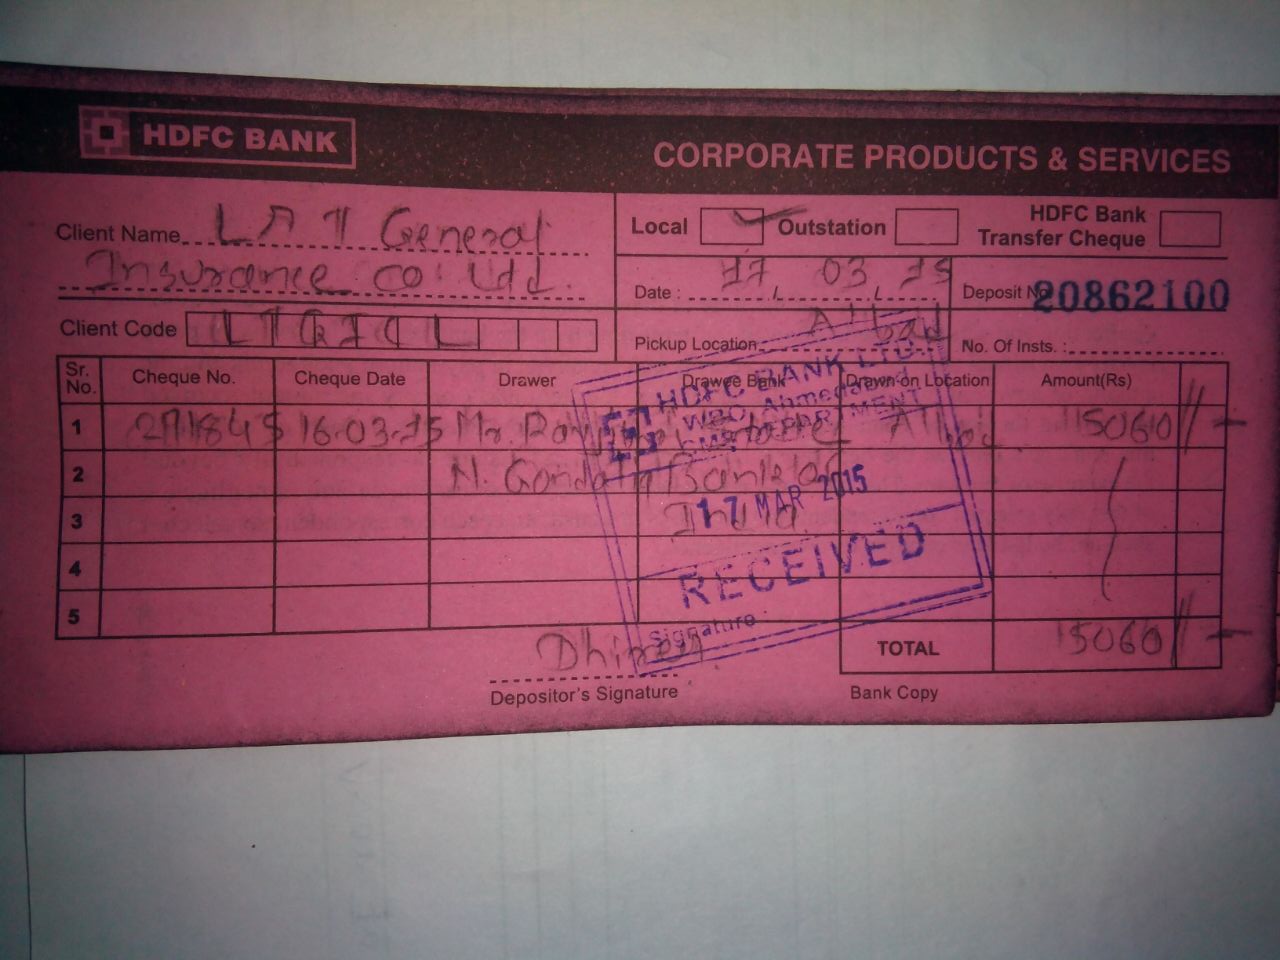 HDFC BANK
CORPORATE PRODUCTS & SERVICES
Client Name L n T General
Insurance co. Ltd.
Client Code LTGICL
Local Outstation HDFC Bank Transfer Cheque
Date : 17 03 15
Deposit No 20862100
Pickup Location: A'bad
No. Of Insts. :
Sr. No. Cheque No. Cheque Date Drawer Drawee Bank Drawn on Location Amount(Rs)
1 16-03-15 Mr. 15060//-
2 N. Bank of
3 India
4
5
TOTAL 15060//-
HDFC BANK LTD.
WBO, Ahmedabad
CMS DEPARTMENT
17 MAR 2015
RECEIVED
Signature
Depositor's Signature
Bank Copy